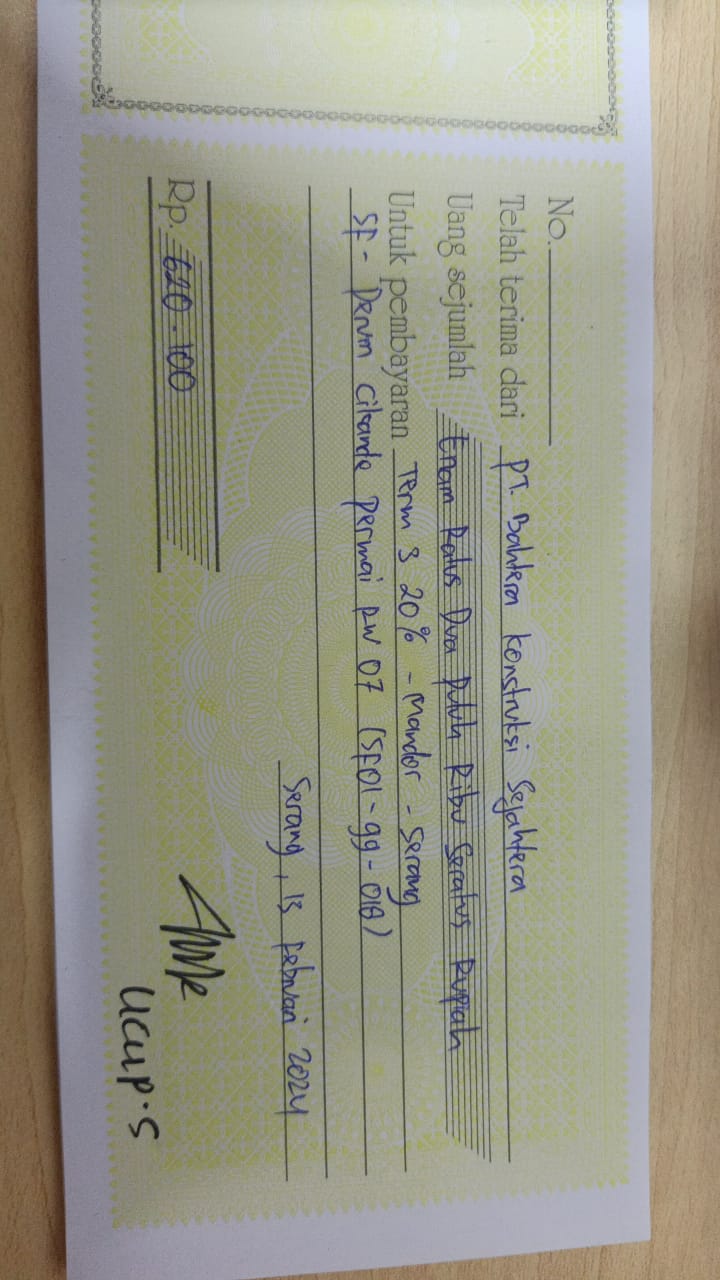 No.
Telah terima dari PT. Bahtera Konstruksi Sejahtera
Uang sejumlah Enam Ratus Dua Puluh Ribu Seratus Rupiah
Untuk pembayaran Term 3 20% - Mandor - Serang
SF - Perum Cikande Permai RW 07 (SF01-99-018)
Serang, 13 Februari 2024
Rp. 620.100
Ucup.S